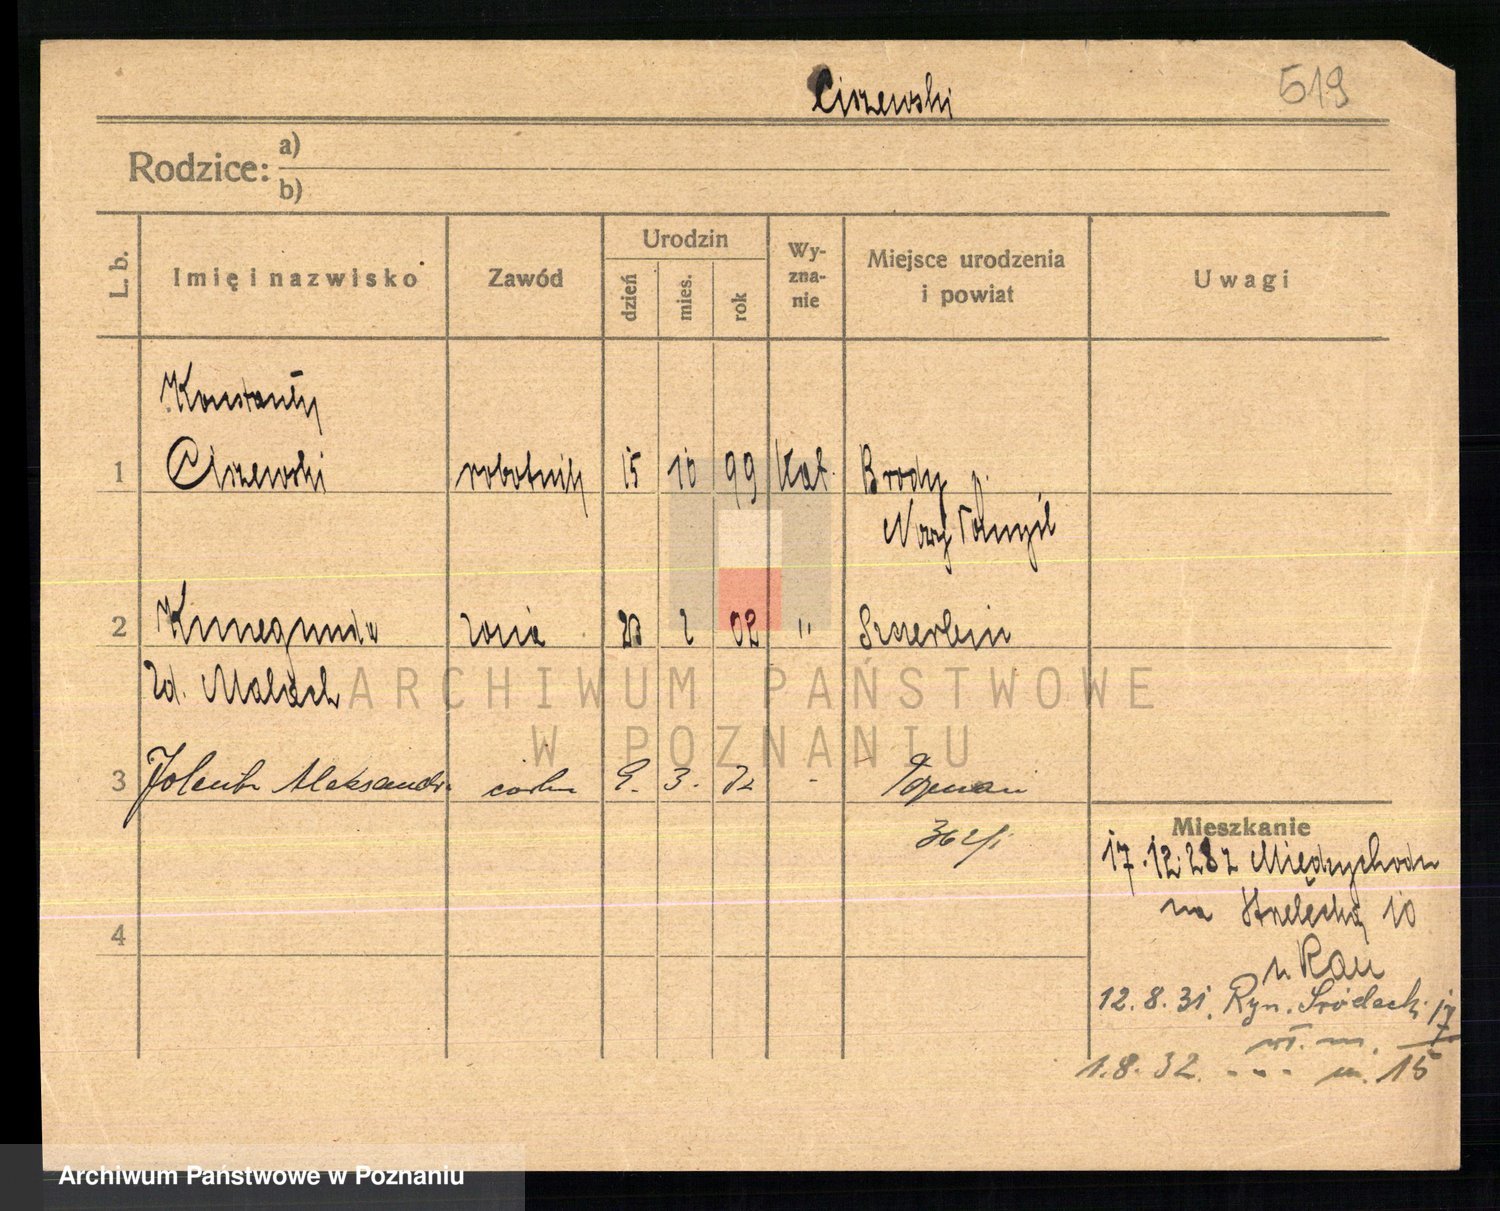 Ciszewski
519
Rodzice: a)
b)
L. b.
Imię i nazwisko
Zawód
Urodzin
dzień
mies.
rok
Wy-
zna-
nie
Miejsce urodzenia
i powiat
Uwagi
Konstanty
1 Ciszewski robotnik 15 10 99 Kat. Brody p.
Nowy Tomyśl
2 Kunegunda żona 2 02 " Szczerbin
zd.
3 Jolenta Aleksandr. córka 9. 3. 32 - Poznań
Mieszkanie
17.12.28 z Międzychodu
na Strzelecką 10
u Rau
12.8.31. Ryn. Śródecki 17
7
wł. m.
1.8.32. - - - m. 15
4
ARCHIWUM PAŃSTWOWE
W POZNANIU
Archiwum Państwowe w Poznaniu